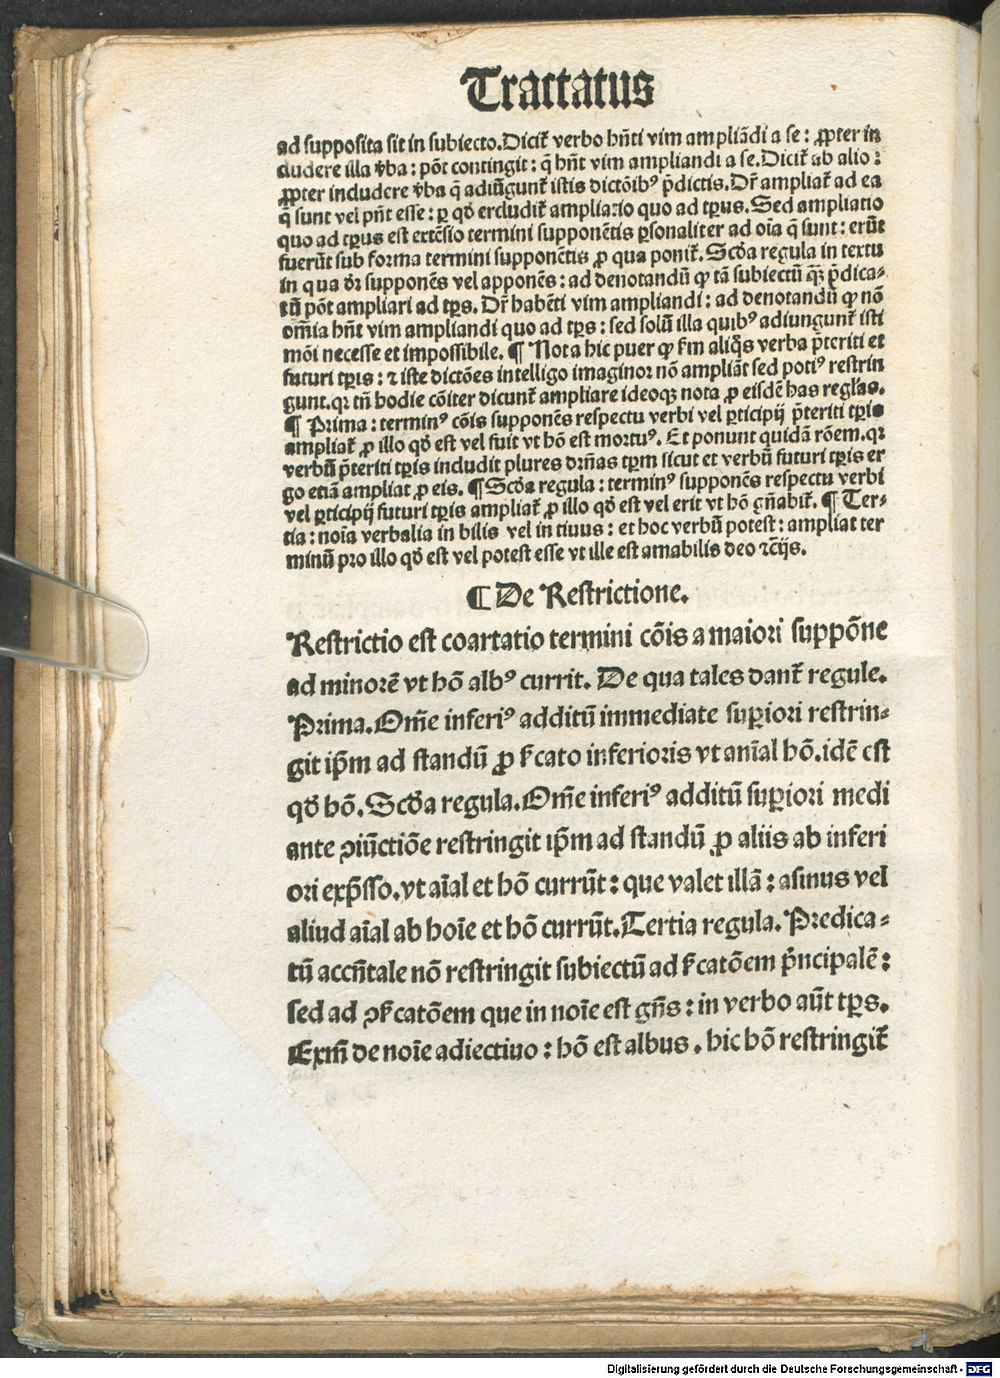 Tractatus
ad supposita sit in subiecto. Dicit̄ verbo hñti vim ampliādi a se: ꝓpter in
cludere illa v̄ba: pōt contingit: q̄ hñt vim ampliandi a se. Dicit̄ ab alio:
ꝓpter includere v̄ba q̄ adiūgunt̄ istis dictōibꝰ p̄dictis. Dr̄ ampliat̄ ad ea
q̄ sunt vel pñt esse: ꝑ qđ excludit̄ ampliatio quo ad tꝑus. Sed ampliatio
quo ad tꝑus est extēsio termini supponētis ꝑsonaliter ad oīa q̄ sunt: erūt
fuerūt sub forma termini supponētis ꝓ qua ponit̄. Scđa regula in textu
in qua dr̄ supponēs vel apponēs: ad denotandū ꝙ tā subiectū qȝ̄ p̄dica-
tū pōt ampliari ad tꝑs. Dr̄ habēti vim ampliandi: ad denotandū ꝙ nō
om̄ia hñt vim ampliandi quo ad tꝑs: sed solū illa quibꝰ adiungunt̄ isti
mōi necesse et impossibile. ¶ Nota hic puer ꝙ fm aliq̄s verba p̄teriti et
futuri tꝑis: ⁊ iste dictōes intelligo imaginor nō ampliāt sed potiꝰ restrin
gunt. qr tñ hodie cōiter dicunt̄ ampliare ideoqȝ nota ꝓ eisdē has reglas.
¶ Prima: terminꝰ cōis supponēs respectu verbi vel ꝑticipij p̄teriti tꝑis
ampliat̄ ꝓ illo qđ est vel fuit vt hō est mortuꝰ. Et ponunt quidā rōem. qr
verbū p̄teriti tꝑis includit plures drñas tꝑm sicut et verbū futuri tꝑis er
go etiā ampliat ꝓ eis. ¶ Scđa regula: terminꝰ supponēs respectu verbi
vel ꝑticipij futuri tꝑis ampliat̄ ꝓ illo qđ est vel erit vt hō gñabit̄. ¶ Ter-
tia: noīa verbalia in bilis vel in tiuus: et hoc verbū potest: ampliat ter
minū pro illo qđ est vel potest esse vt ille est amabilis deo ⁊c̄ijs.
¶ De Restrictione.
Restrictio est coartatio termini cōis a maiori suppōne
ad minorē vt hō albꝰ currit. De qua tales dant̄ regule.
Prima. Om̄e inferiꝰ additū immediate suꝑiori restrin-
git ip̄m ad standū ꝓ ſ̄cato inferioris vt anīal hō. idē est
qđ hō. Scđa regula. Om̄e inferiꝰ additū suꝑiori medi
ante ꝯiūctiōe restringit ip̄m ad standū ꝓ aliis ab inferi
ori exp̄sso. vt aīal et hō currūt: que valet illā: asinus vel
aliud aīal ab hoīe et hō currūt. Tertia regula. Predica-
tū accñtale nō restringit subiectū ad ſ̄catōem p̄ncipalē:
sed ad ꝯſ̄catōem que in noīe est gñs: in verbo aūt tꝑs.
Exm̄ de noīe adiectiuo: hō est albus. hic hō restringit̄
Digitalisierung gefördert durch die Deutsche Forschungsgemeinschaft - DFG